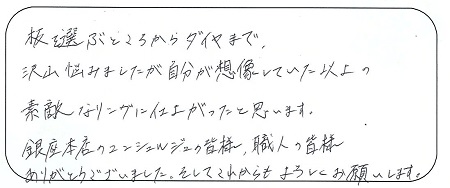 板を選ぶところからダイヤまで、
沢山悩みましたが自分が想像していた以上の
素敵なリングに仕上がったと思います。
銀座本店のコンシェルジュの皆様、職人の皆様
ありがとうございました。そしてこれからもよろしくお願いします。